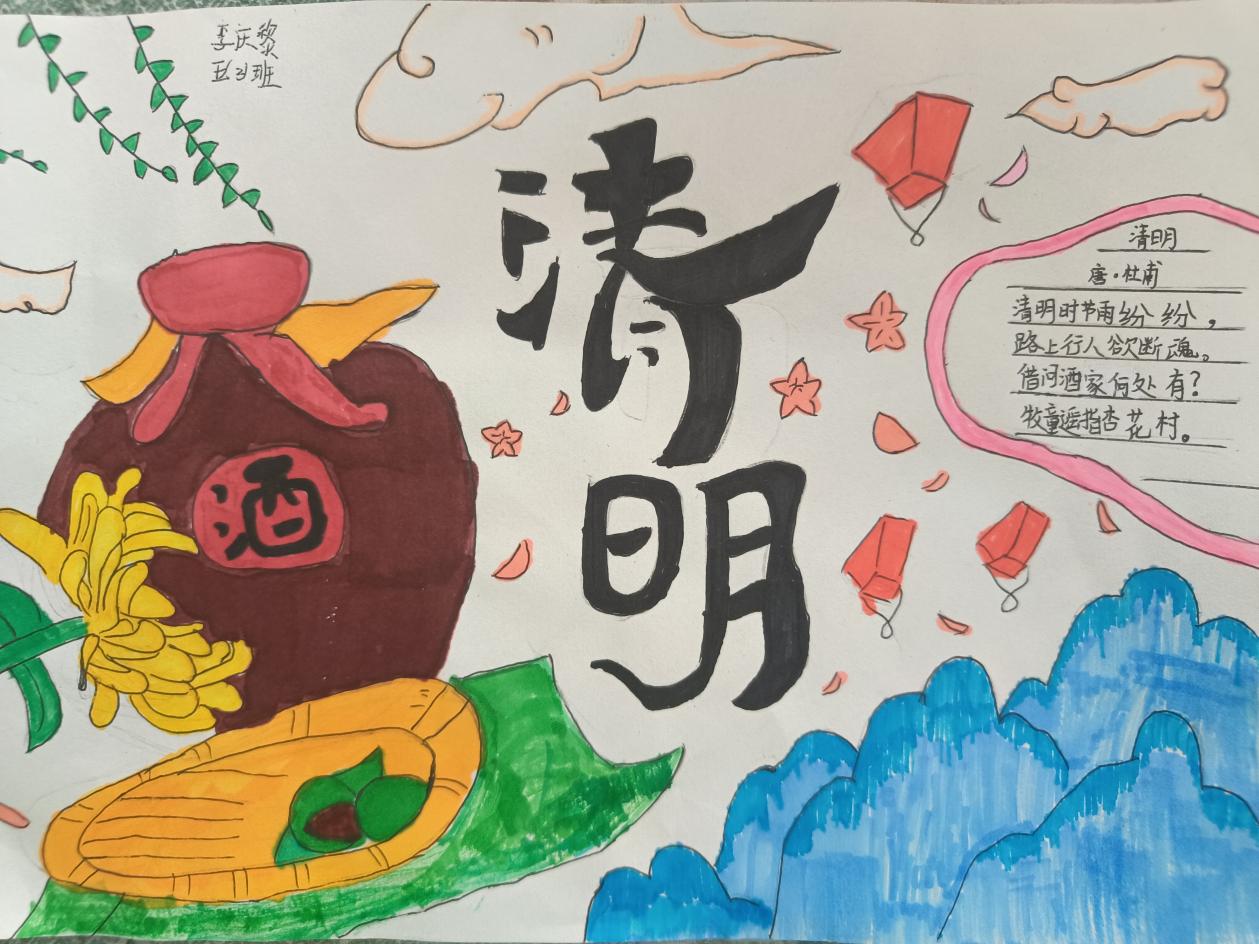 李庆黎
五(3)班
清明
酒
清明
唐·杜甫
清明时节雨纷纷，
路上行人欲断魂。
借问酒家何处有？
牧童遥指杏花村。